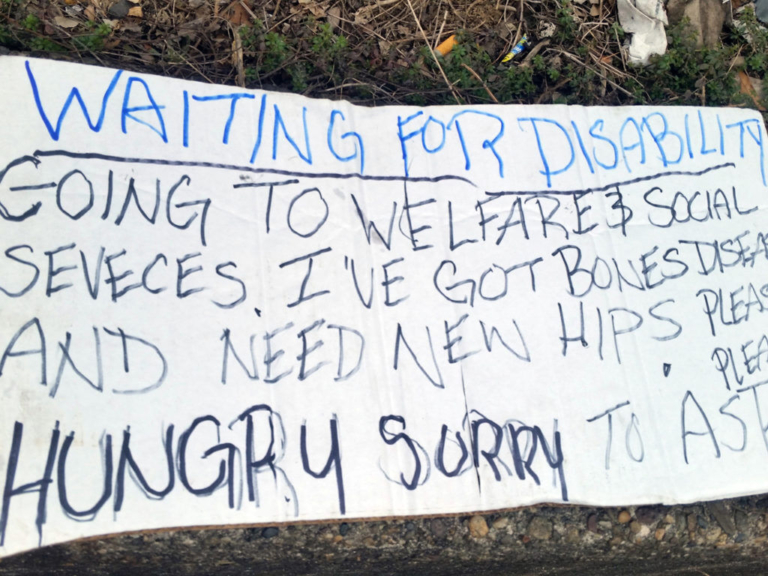 WAITING FOR DISABILITY
GOING TO WELFARE & SOCIAL
SEVECES. I'VE GOT BONES DISEA
AND NEED NEW HIPS. PLEAS
PLEA
HUNGRY SORRY TO AS